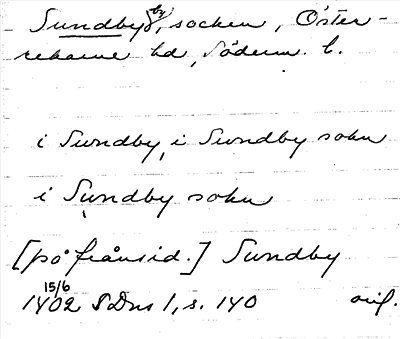 Sundby, by, socken, Öster-
rekarne hd, Söderm. l.
i Sundby, i Sundby sokn
i Sundby sokn
[på frånsid.] Sundby
15/6
1402 SDns 1, s. 140 orig.